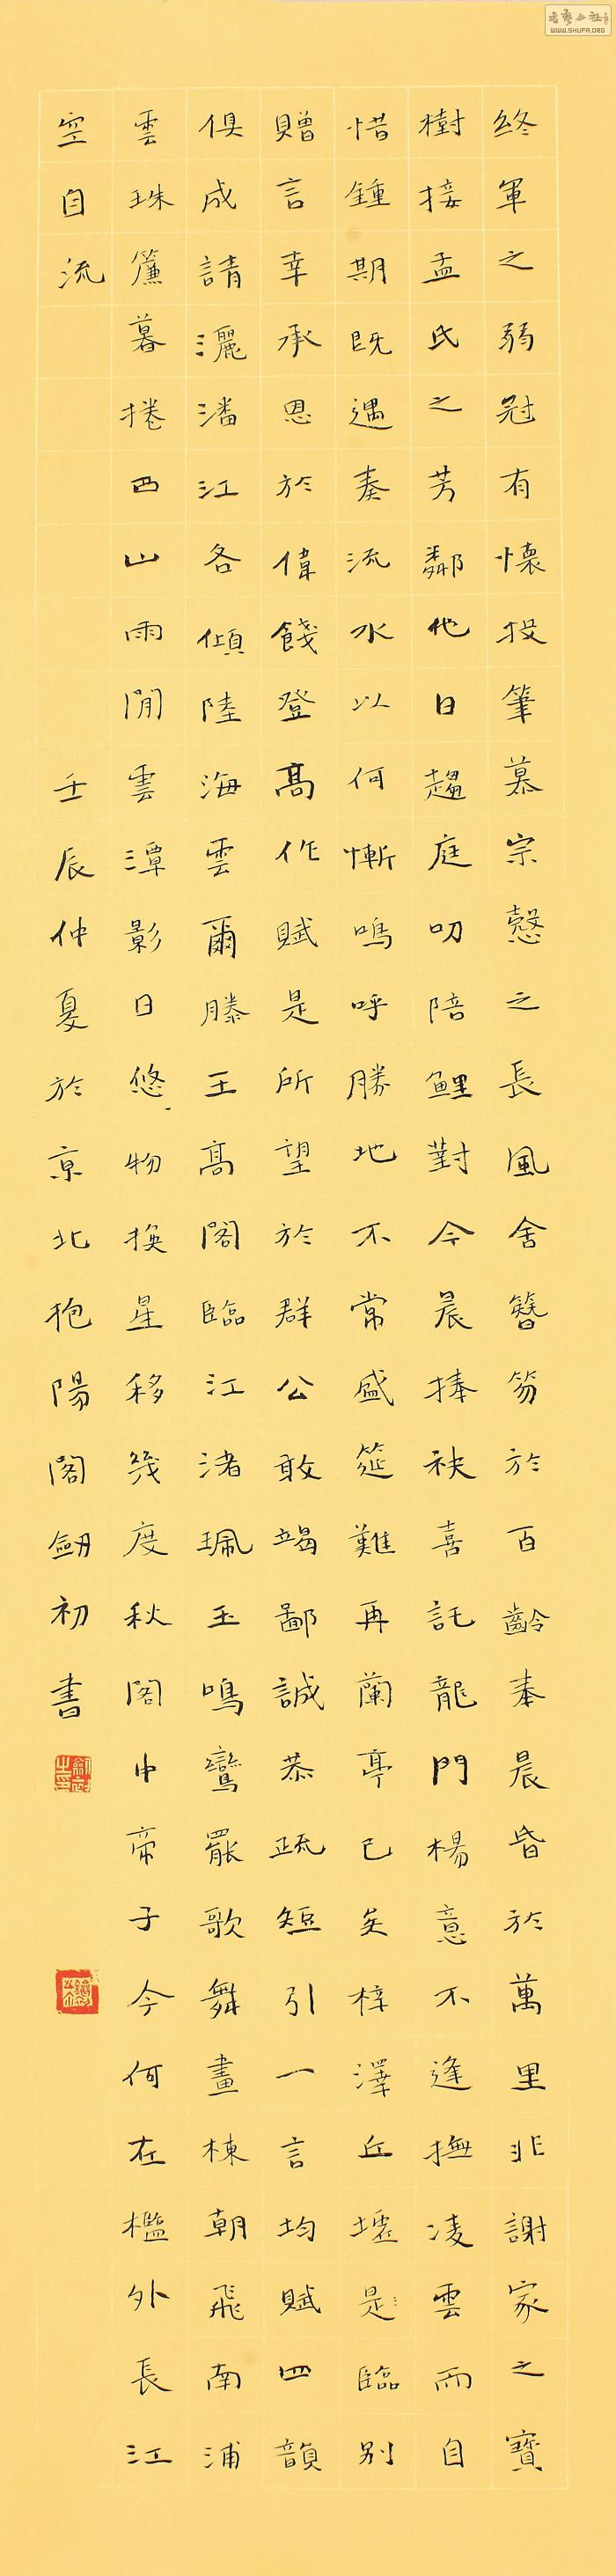 終軍之弱冠有懷投筆慕宗慤之長風舍簪笏於百齡奉晨昏於萬里非謝家之寶
樹接孟氏之芳鄰他日趨庭叨陪鯉對今晨捧袂喜託龍門楊意不逢撫凌雲而自
惜鍾期既遇奏流水以何慚鳴呼勝地不常盛筵難再蘭亭已矣梓澤丘墟是臨別
贈言幸承恩於偉餞登高作賦是所望於群公敢竭鄙誠恭疏短引一言均賦四韻
俱成請灑潘江各傾陸海雲爾滕王高閣臨江渚珮玉鳴鸞罷歌舞畫棟朝飛南浦
雲珠簾暮捲西山雨閒雲潭影日悠々物換星移幾度秋閣中帝子今何在檻外長江
空自流
壬辰仲夏於京北抱陽閣劍初書
WWW.SHUFA.ORG